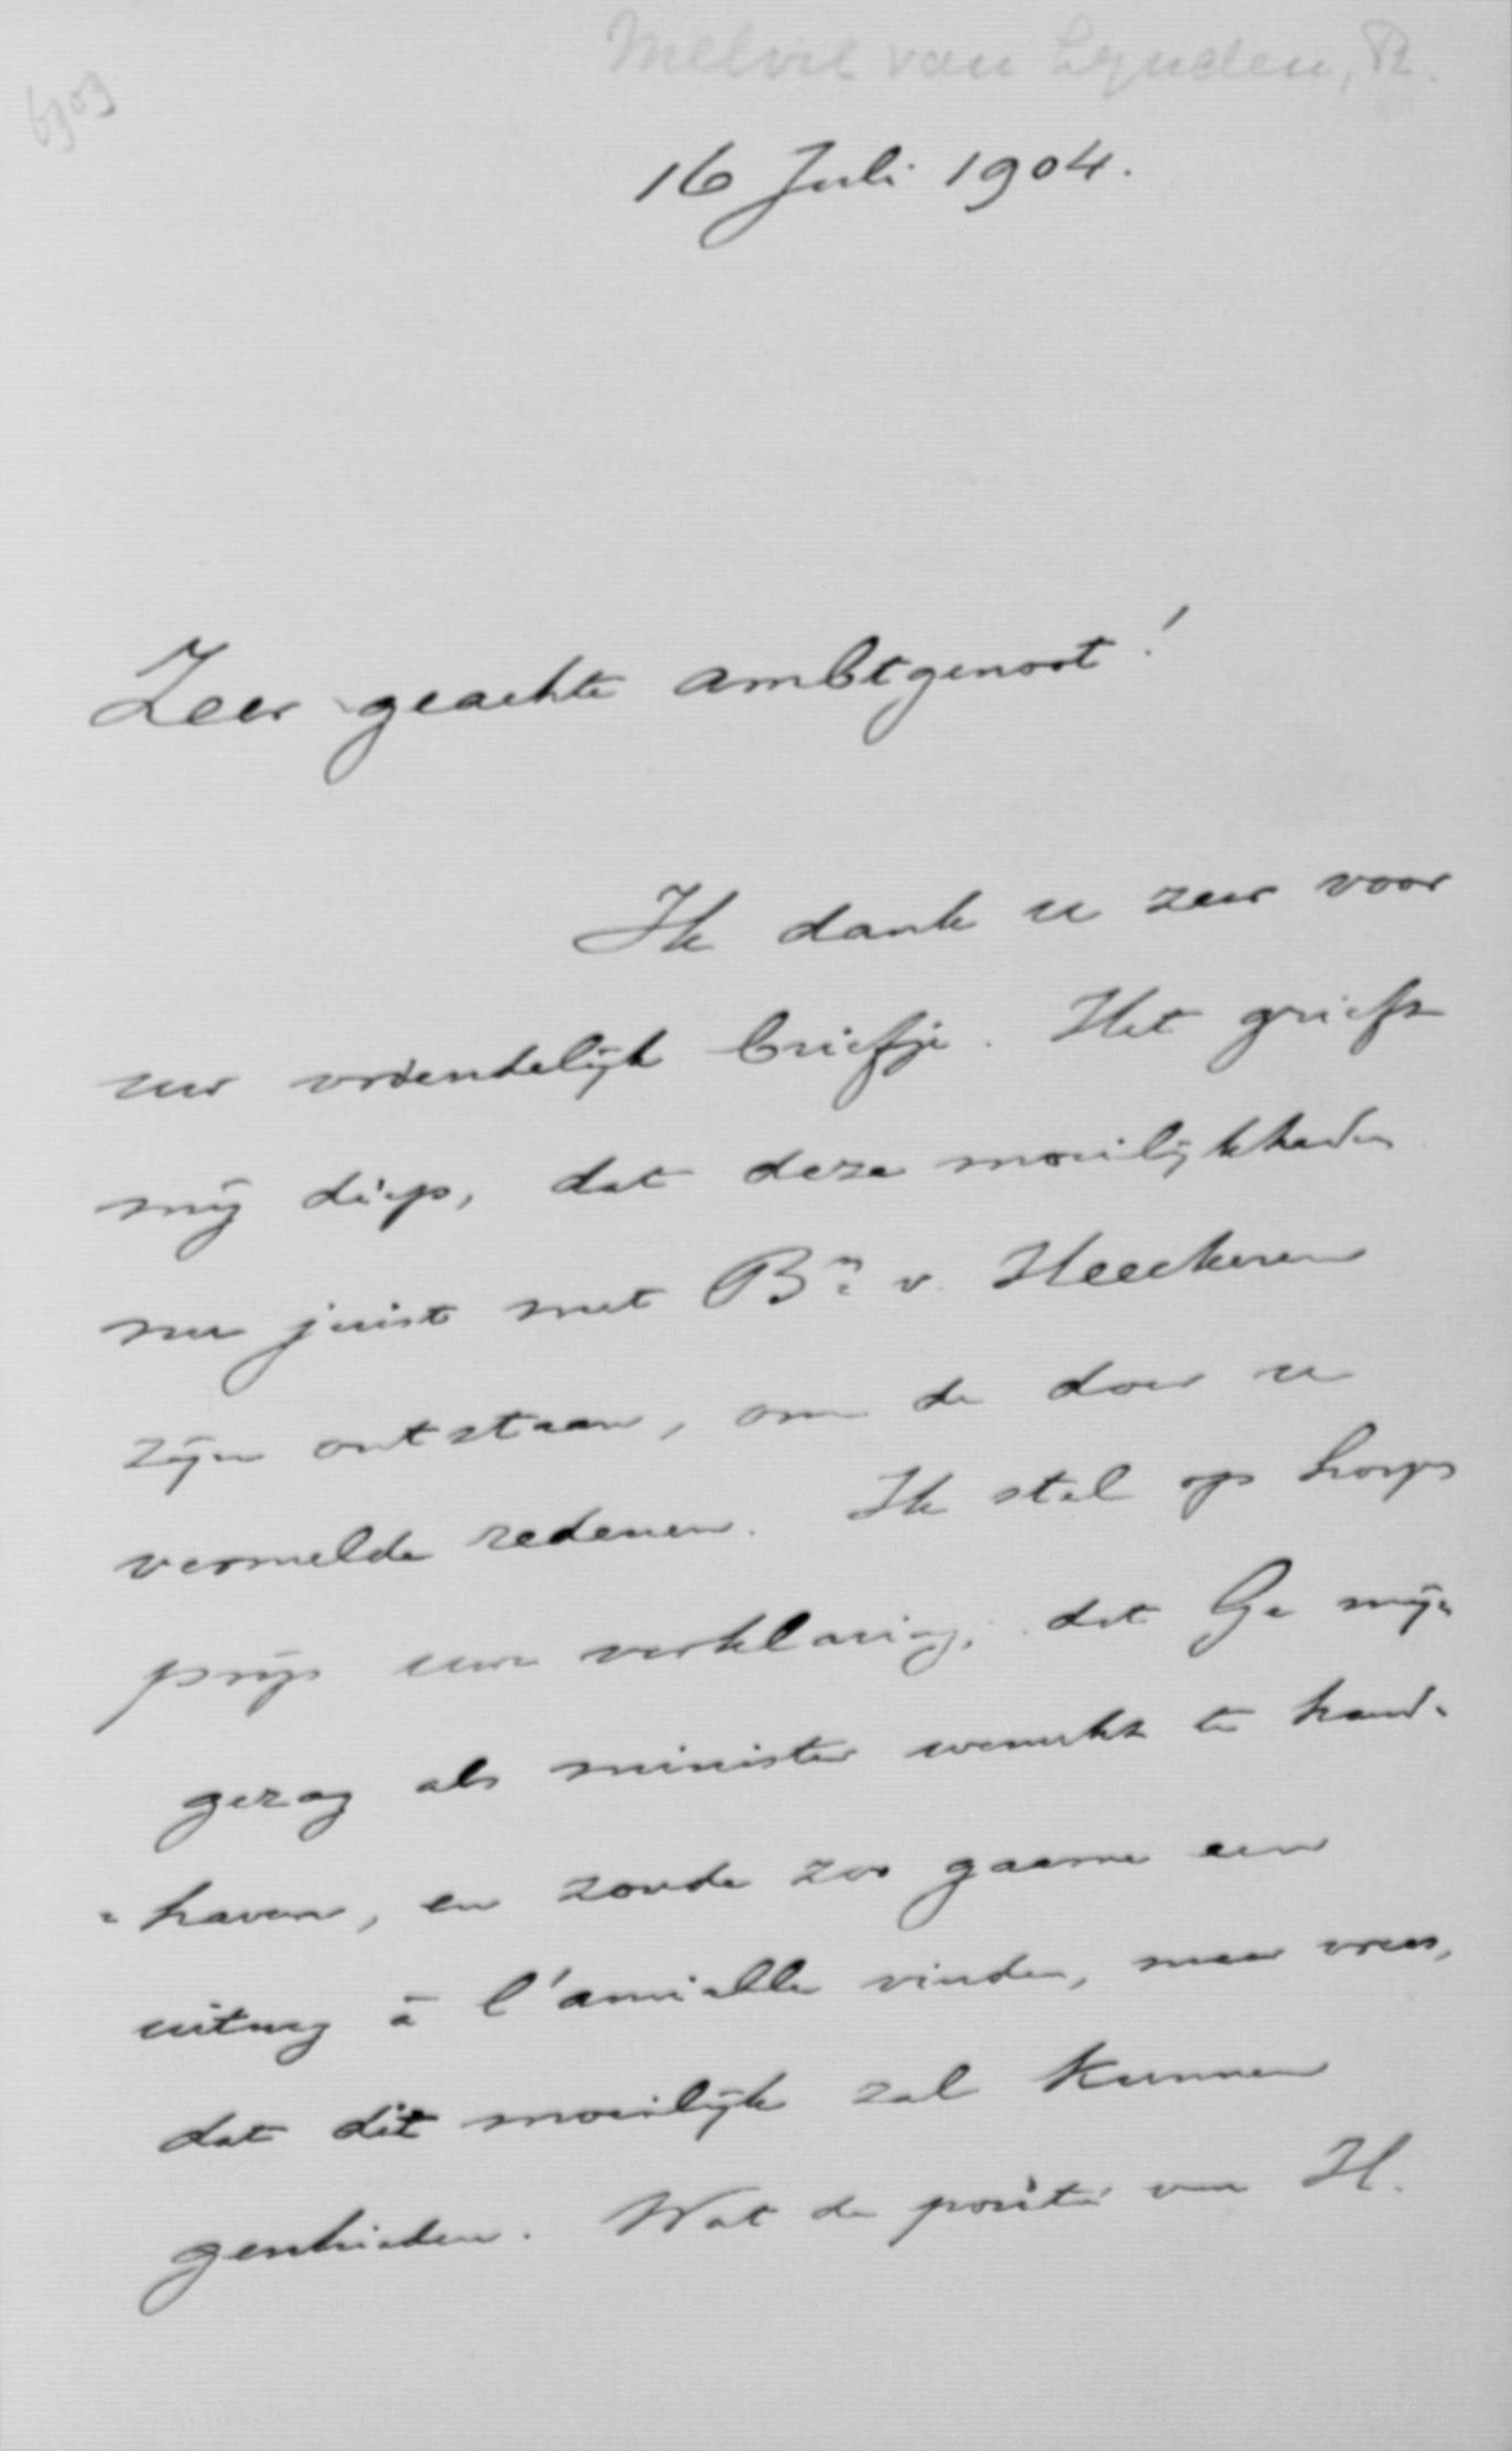 Melvil van Lynden, R.
6909
16 Juli 1904.
Zeer geachte ambtgenoot!
Ik dank u zeer voor
uw vriendelijk briefje. Het grieft
mij diep, dat deze moeilijkheden
nu juist met Bn. v. Heeckeren
zijn ontstaan, om de door u
vermelde redenen. Ik stel op hoogen
prijs uwe verklaring, dat Ge mijn
gezag als minister wenscht te hand-
=haven, en zoude zoo gaarne een
uitweg à l'amiable vinden, maar vrees,
dat dit moeilijk zal kunnen
geschieden. Wat de positie van H.